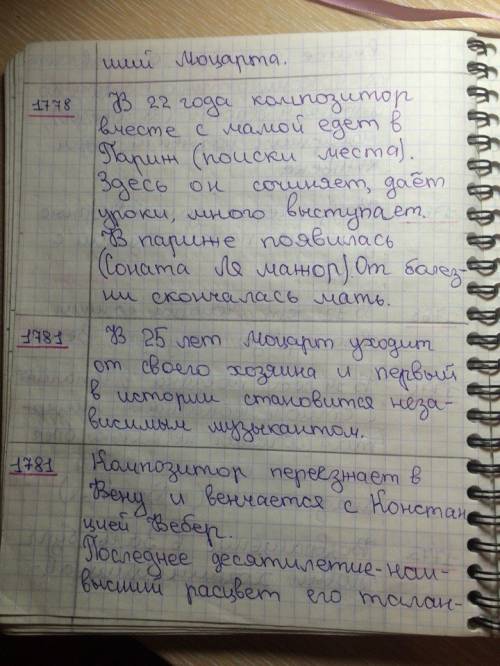 ший Моцарта.
1778 В 22 года композитор
вместе с мамой едет в
Париж (поиски места).
Здесь он сочиняет, даёт
уроки, много выступает.
В париже появилась
(Соната Ля мажор). От болез-
ни скончалась мать.
1781 В 25 лет Моцарт уходит
от своего хозяина и первый
в истории становится неза-
висимым музыкантом.
1781 Композитор переезнает в
Вену и венчается с Констан
цией Вебер.
Последнее десятилетие-наи-
высший расцвет его талан-